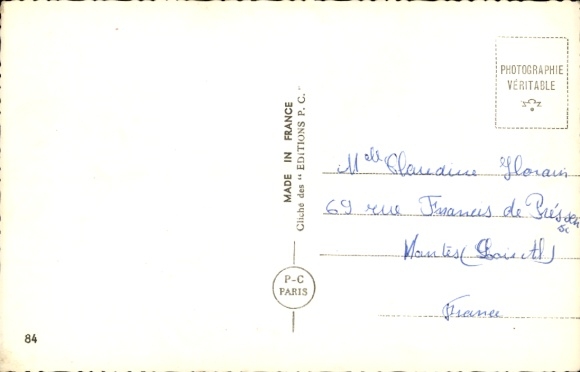 PHOTOGRAPHIE
VÉRITABLE
MADE IN FRANCE
Cliché des "EDITIONS P. C."
Melle Claudine Florain
69 rue Francis de Préssensé
Nantes (Loire Atl)
France
P-C
PARIS
84